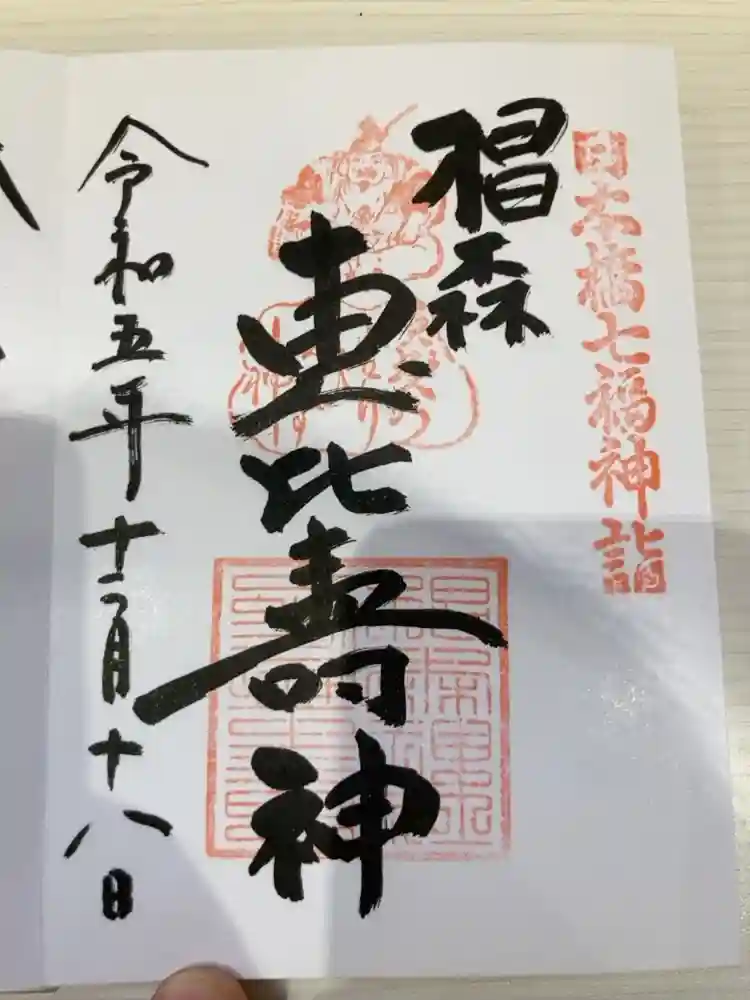 日本橋七福神詣
椙森
恵比壽神
令和五年十一月十八日